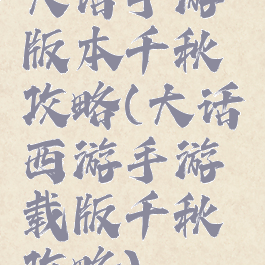 大话手游
版本千秋
攻略(大话
西游手游
载版千秋
攻略)